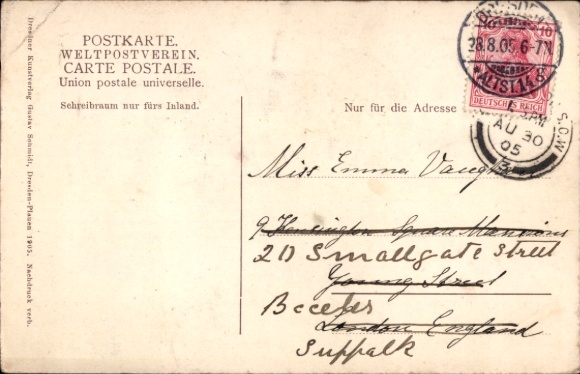 POSTKARTE.
WELTPOSTVEREIN.
CARTE POSTALE.
Union postale universelle.
Schreibraum nur fürs Inland.
Nur für die Adresse
Dresdner Kunstverlag Gustav Schmidt, Dresden-Plauen 1903. Nachdruck verb.
28.8.05. 6-7N
*ALTST.14.
DEUTSCHES REICH
10
AU 30
05
S.O.W
Miss Emma
9 Kensington Square Mansions
20 Smallgate Street
Young Street
Beccles
London England
Suffalk